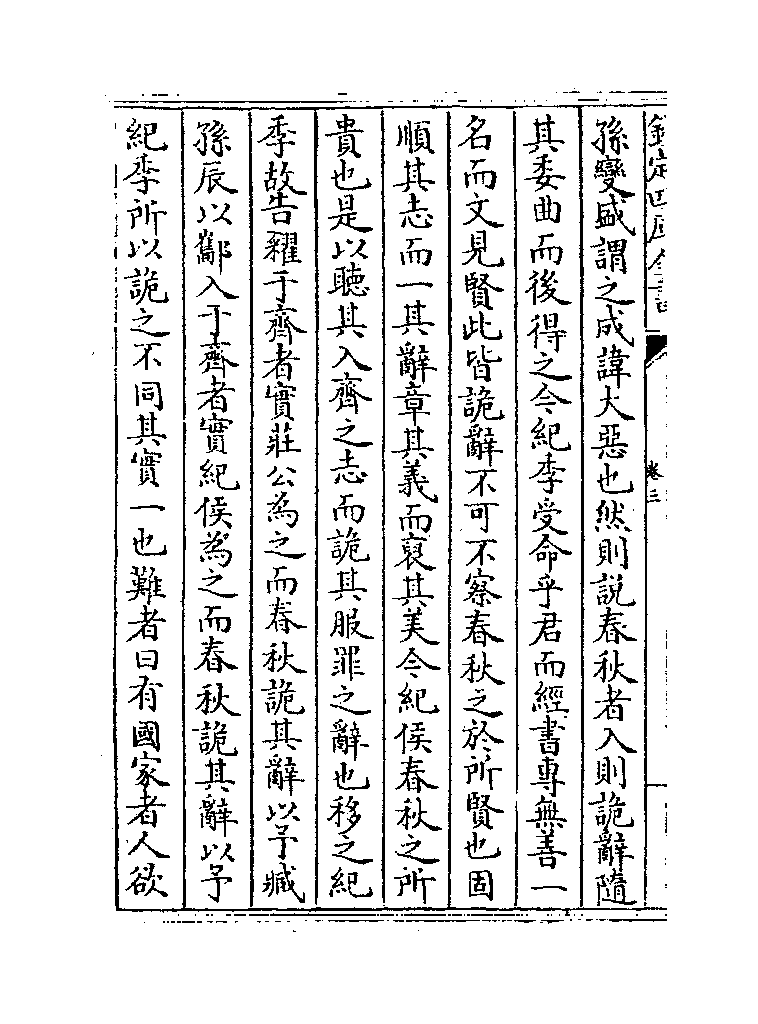 欽定四庫全書
卷三
孫變盛謂之成諱大惡也然則説春秋者入則詭辭隨
其委曲而後得之今紀季受命乎君而經書專無善一
名而文見賢此皆詭辭不可不察春秋之於所賢也固
順其志而一其辭章其義而襃其美今紀侯春秋之所
貴也是以聽其入齊之志而詭其服罪之辭也移之紀
季故告糴于齊者實莊公為之而春秋詭其辭以予臧
孫辰以酅入于齊者實紀侯為之而春秋詭其辭以予
紀季所以詭之不同其實一也難者曰有國家者人欲